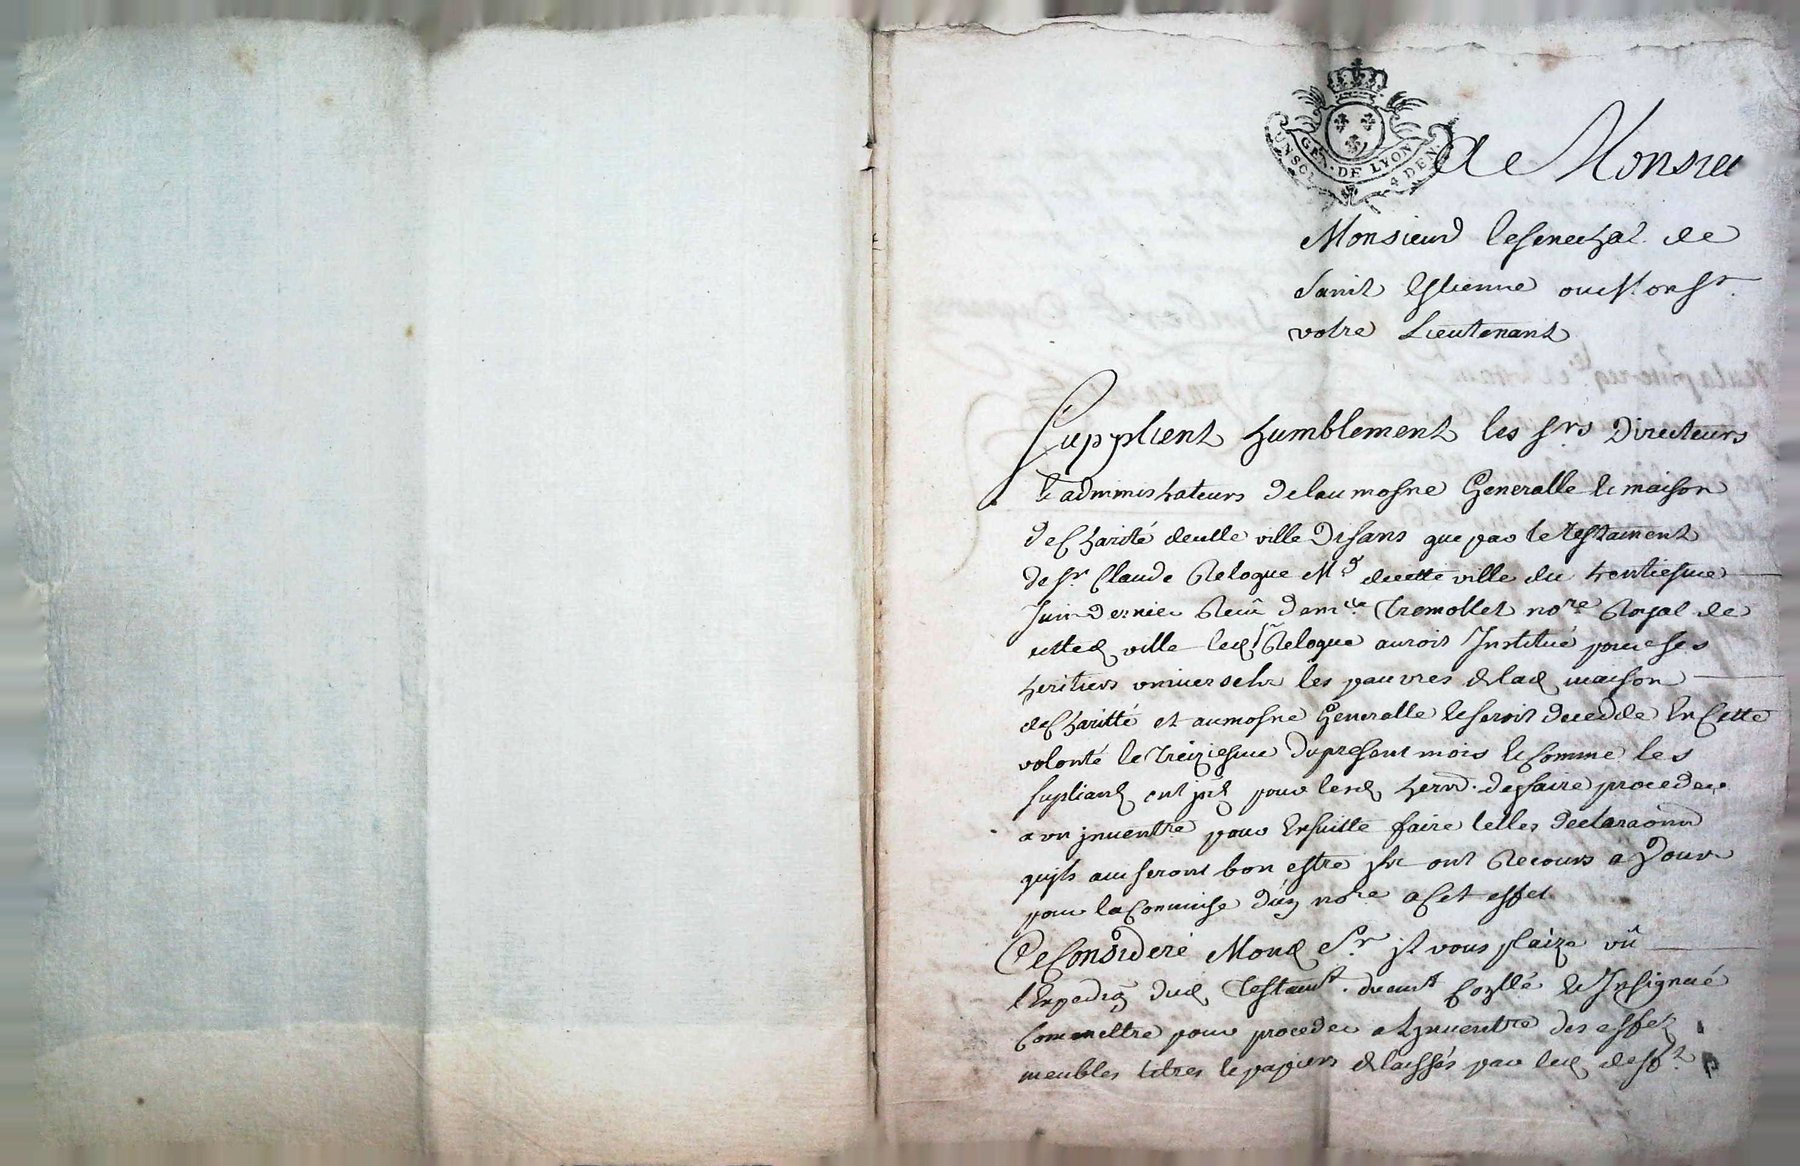 GEN. DE LYON
UN SOL 4 DEN.
A Monsieu
Monsieur le senechal de
saint Estienne ou Monsr.
votre Lieutenant
Suplient humblement les srs Directeurs
& administrateurs de laumosne Generalle & maison
de Charité de cette ville Disans que par le testament
de sr Claude Reloque Md de cette ville du trentiesme
Juin dernier Receu Tremollet nore Royal de
cette d ville led sr Reloque auroit Institué pour ses
heritiers universels les pauvres de lad maison
de Charitté et aumosne Generalle & seroit decedde En Cette
volonté le treiziesme du present mois & Comme les
supliants ont pour de faire proceder
a un Inventre pour Ensuitte faire telles declaraons
quils auiseront bon estre Ils ont Recours a Vous
pour la Commise d'un nore a Cet effet
Ce Consideré Mond Sr Il vous plaize vû
lExpedion dud testamt. & Insignué
Commettre pour proceder a LInventre des effets
meubles titres & papiers delaissés par led defft